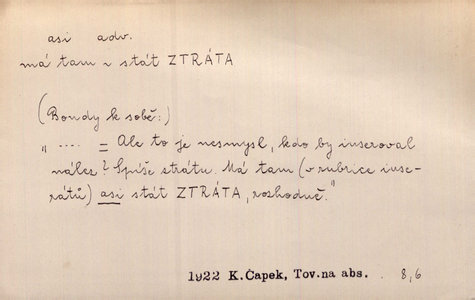 asi adv.
má tam v stát ZTRÁTA
(Bondy k sobě:)
" .... = Ale to je nesmysl, kdo by inseroval
nález? Spíše ztrátu. Má tam (v rubrice inse-
rátů) asi stát ZTRÁTA, rozhodně."
1922 K.Čapek, Tov.na abs. 8,6